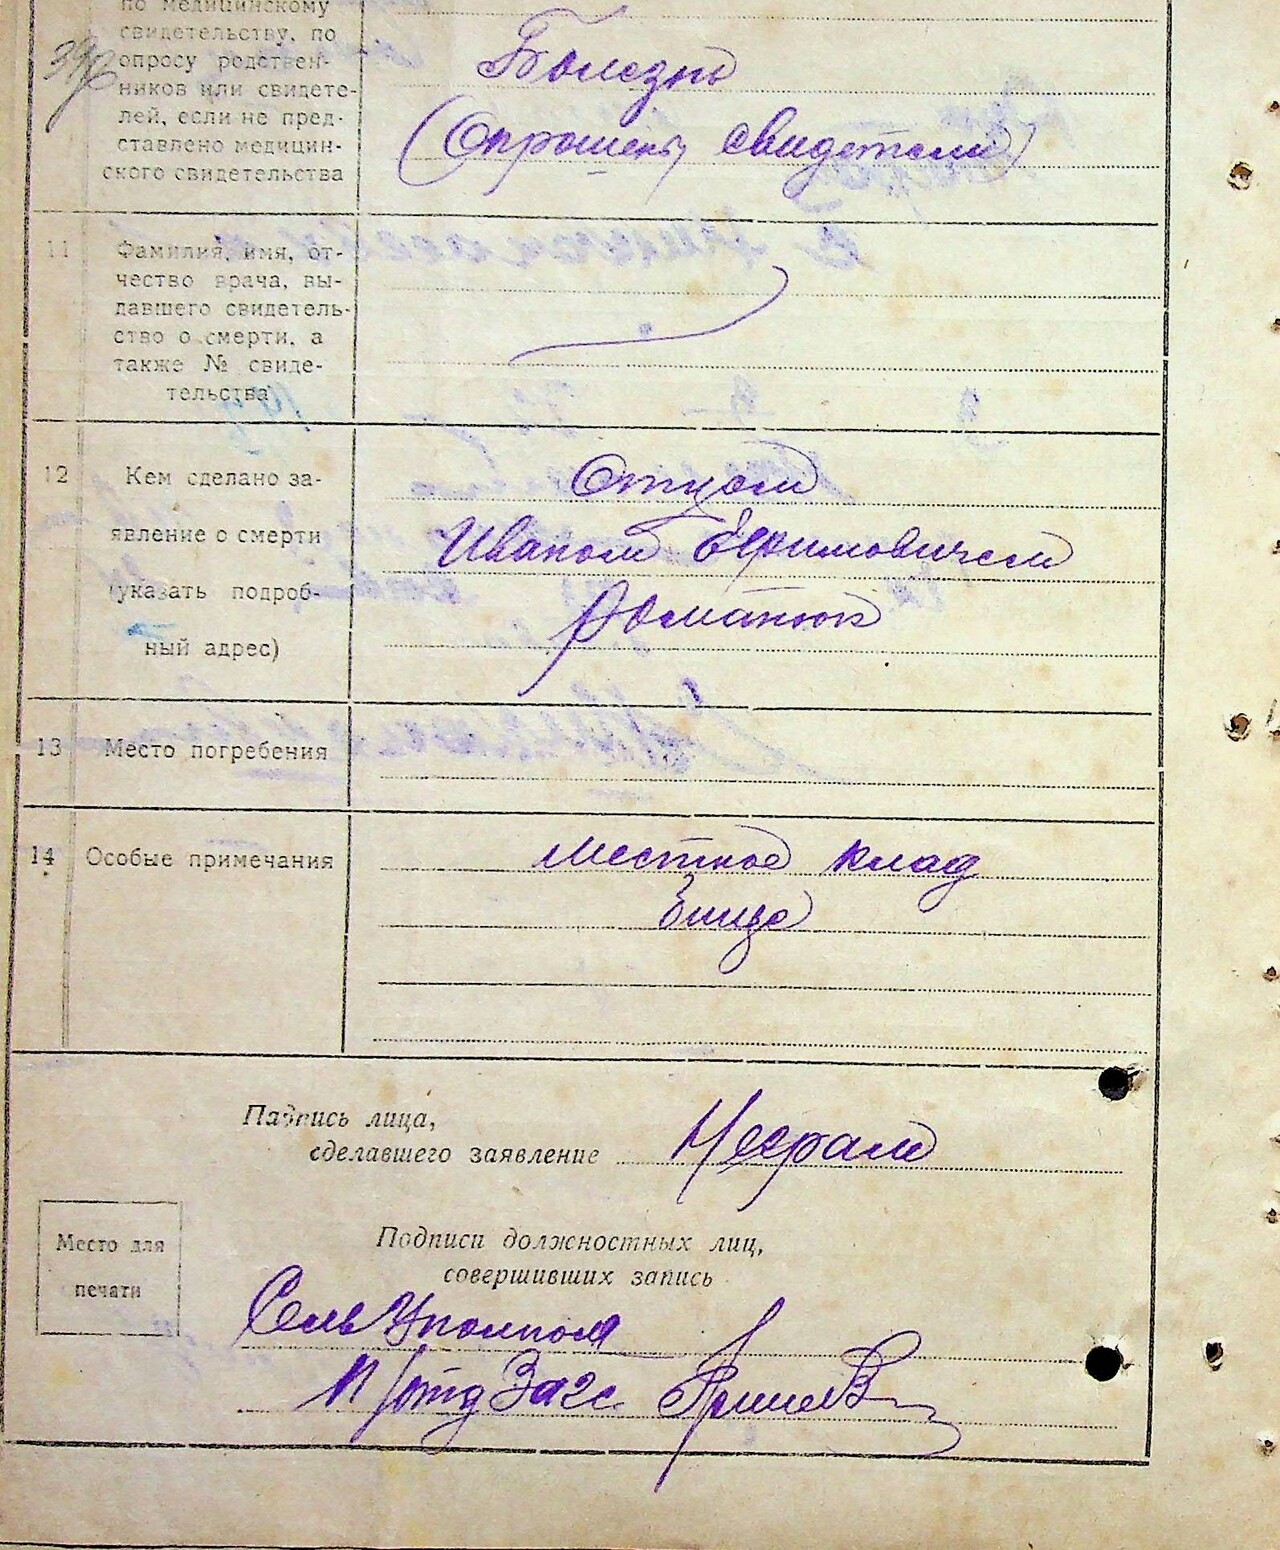 по медицинскому
свидетельству, по
опросу родствен-
ников или свидете-
лей, если не пред-
ставлено медицин-
ского свидетельства
Болезнь
(Опрошены свидетели)
11
Фамилия, имя, от-
чество врача, вы-
давшего свидетель-
ство о смерти, а
также № свиде-
тельства
12
Кем сделано за-
явление о смерти
(указать подроб-
ный адрес)
Отцом
Иваном Ефимовичем
Романюк
13
Место погребения
14
Особые примечания
местное клад
бище
Падпись лица,
сделавшего заявление
Неграм
Место для
печати
Подписи должностных лиц,
совершивших запись
Сель Уполном
п/отд Загс